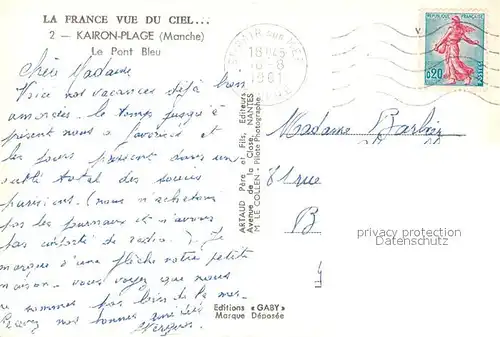 LA FRANCE VUE DU CIEL...
2 — KAIRON-PLAGE (Manche)
Le Pont Bleu
Chère Madame
Voici nos vacances déjà bien
amorcées. le temps jusqu'à
présent nous a favorisé et
les jours passent dans un
oubli total des soucis
parisiens. (nous n'achetons
pas les journaux et n'avons
pas emporté de radio.) Je
marque d'une flèche notre petite
maison. vous voyez que nous
ne sommes pas loin de la mer.
Recevez nos bonnes amitiés
ARTAUD Père et Fils, Editeurs
Avenue de la Close, NANTES
M. LE COLLEN - Pilote Photographe
Editions « GABY »
Marque Déposée
18H45
1961
REPUBLIQUE FRANÇAISE
0,20
POSTES
Madame Barbier
rue
B
privacy protection
Datenschutz